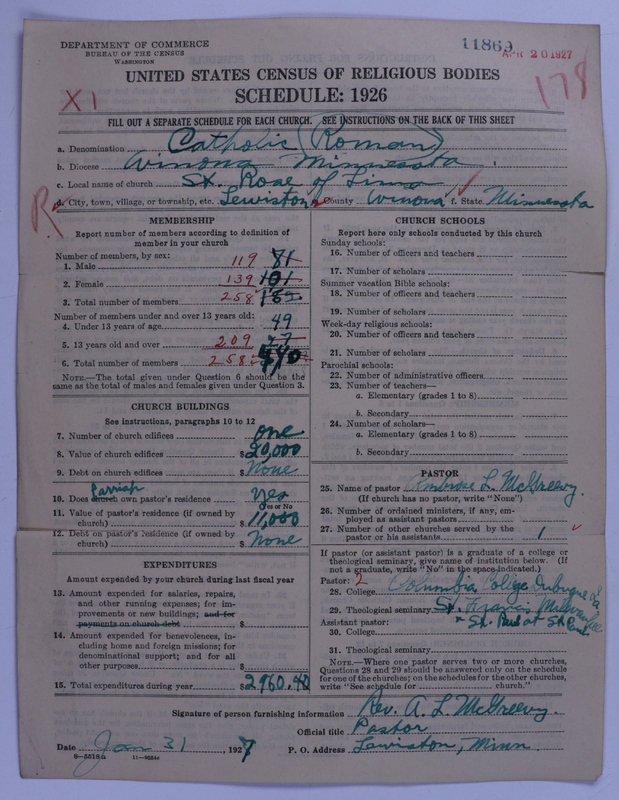 DEPARTMENT OF COMMERCE
BUREAU OF THE CENSUS
WASHINGTON
11869
APR 20 1927
178
X1
UNITED STATES CENSUS OF RELIGIOUS BODIES
SCHEDULE: 1926
FILL OUT A SEPARATE SCHEDULE FOR EACH CHURCH. SEE INSTRUCTIONS ON THE BACK OF THIS SHEET
a. Denomination Catholic (Roman)
b. Diocese Winona Minnesota.
c. Local name of church St. Rose of Lima
R
d. City, town, village, or township, etc. Lewiston e. County Winona f. State Minnesota
MEMBERSHIP
Report number of members according to definition of
member in your church
Number of members, by sex:
1. Male 119 81
2. Female 139 101
3. Total number of members 258
Number of members under and over 13 years old:
4. Under 13 years of age 49
5. 13 years old and over 209
6. Total number of members 258
NOTE.—The total given under Question 6 should be the
same as the total of males and females given under Question 3.
CHURCH BUILDINGS
See instructions, paragraphs 10 to 12
7. Number of church edifices one
8. Value of church edifices $20,000
9. Debt on church edifices $None
Parish
10. Does church own pastor's residence Yes
Yes or No
11. Value of pastor's residence (if owned by
church) $11,000
12. Debt on pastor's residence (if owned by
church) $None
EXPENDITURES
Amount expended by your church during last fiscal year
13. Amount expended for salaries, repairs,
and other running expenses; for im-
provements or new buildings; and for
payments on church debt $
14. Amount expended for benevolences, in-
cluding home and foreign missions; for
denominational support; and for all
other purposes $
15. Total expenditures during year $2960.40
CHURCH SCHOOLS
Report here only schools conducted by this church
Sunday schools:
16. Number of officers and teachers
17. Number of scholars
Summer vacation Bible schools:
18. Number of officers and teachers
19. Number of scholars
Week-day religious schools:
20. Number of officers and teachers
21. Number of scholars
Parochial schools:
22. Number of administrative officers
23. Number of teachers—
a. Elementary (grades 1 to 8)
b. Secondary
24. Number of scholars—
a. Elementary (grades 1 to 8)
b. Secondary
PASTOR
25. Name of pastor Ambrose L. McGreevy.
(If church has no pastor, write "None")
26. Number of ordained ministers, if any, em-
ployed as assistant pastors
27. Number of other churches served by the
pastor or his assistants 1
If pastor (or assistant pastor) is a graduate of a college or
theological seminary, give name of institution below. (If
not a graduate, write "No" in the space indicated.)
Pastor: 2
28. College Columbia College Dubuque Ia.
29. Theological seminary St. Francis Milwaukee
+ St. Paul at St Paul
Assistant pastor:
30. College
31. Theological seminary
NOTE.—Where one pastor serves two or more churches,
Questions 28 and 29 should be answered only on the schedule
for one of the churches; on the schedules for the other churches,
write "See schedule for church."
Signature of person furnishing information Rev. A. L. McGreevy.
Official title Pastor
Date Jan 31, 1927 P. O. Address Lewiston, Minn.
8-5518a 11-9084a